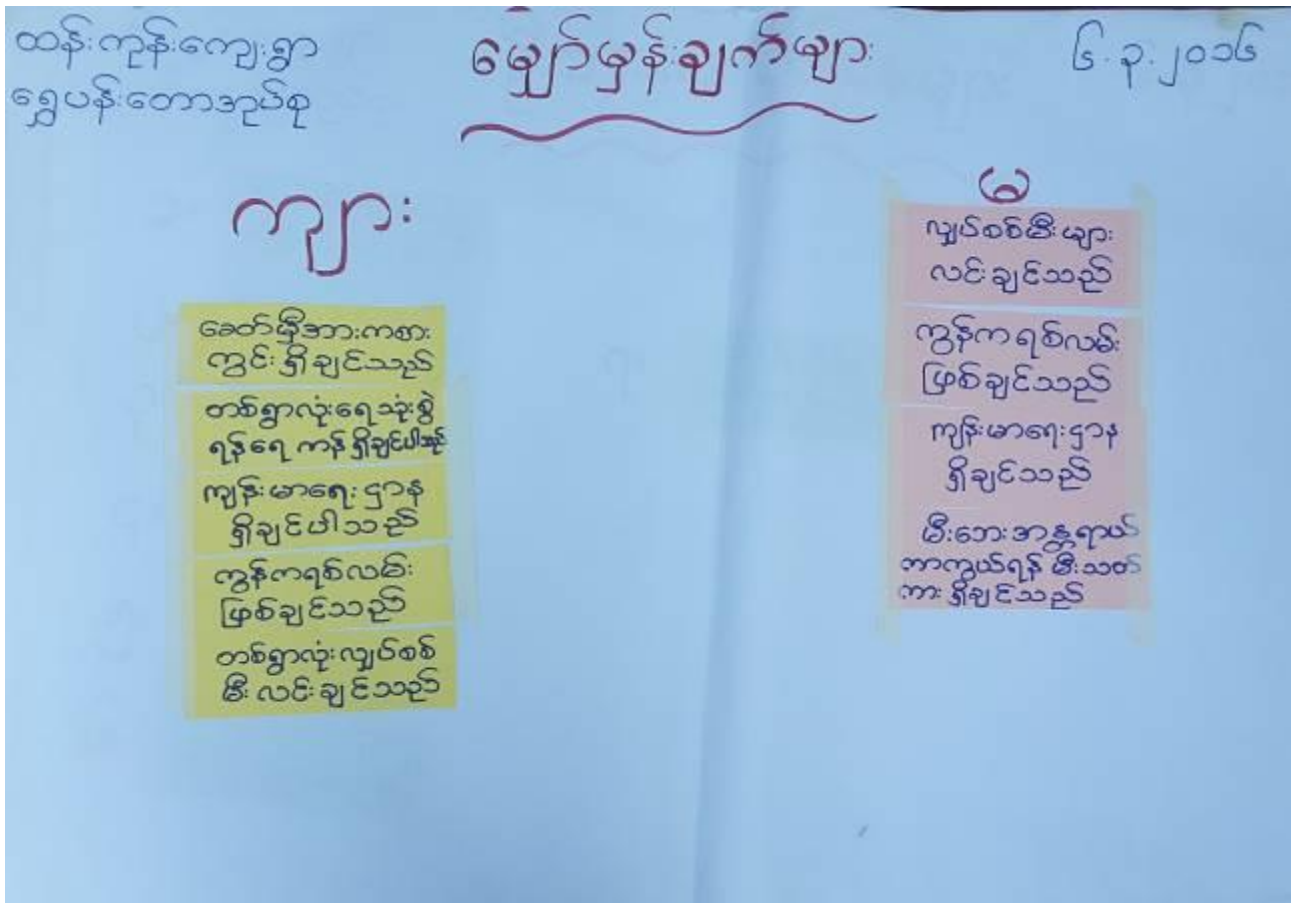 ထန်းကုန်းကျေးရွာ
ရွှေပန်းတောအုပ်စု
မျှော်မှန်းချက်များ
၆.၃.၂၀၁၆
ကျား
ခေတ်မှီအားကစား
ကွင်း ရှိချင်သည်
တစ်ရွာလုံးရေသုံးစွဲ
ရန်ရေ ကန် ရှိချင်ပါသည်
ကျန်းမာရေး ဌာန
ရှိချင်ပါသည်
ကွန်ကရစ်လမ်း
ဖြစ်ချင်သည်
တစ်ရွာလုံးလျှပ်စစ်
မီး လင်းချင်သည်
မ
လျှပ်စစ်မီးများ
လင်းချင်သည်
ကွန်ကရစ်လမ်း
ဖြစ်ချင်သည်
ကျန်းမာရေးဌာန
ရှိချင်သည်
မီးဘေးအန္တရာယ်
ကာကွယ်ရန် မီးသတ်
ကား ရှိချင်သည်